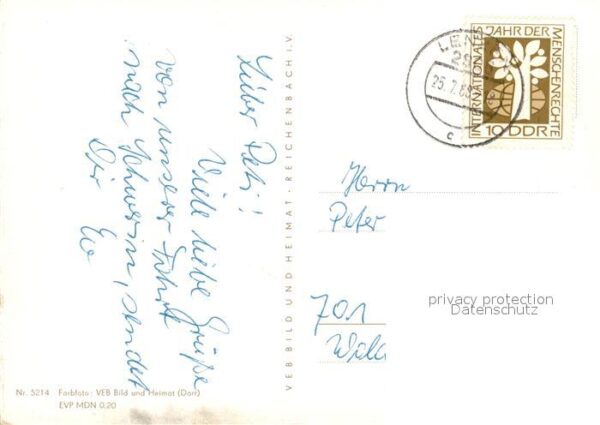 Lieber Peter!
Viele liebe Grüße
von unserer Fahrt
nach Schwerin, sendet
Dir
INTERNATIONALES JAHR DER MENSCHENRECHTE
10 DDR
25. 7. 68
c
Herrn
Peter
701
privacy protection
Datenschutz
VEB BILD UND HEIMAT · REICHENBACH i. V.
Nr. 5214 Farbfoto: VEB Bild und Heimat (Darr)
EVP MDN 0,20